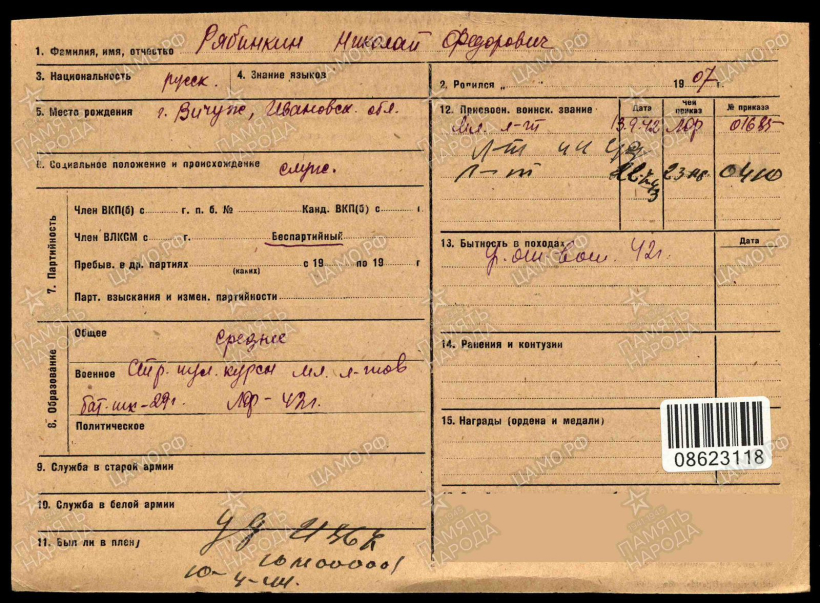 1. Фамилия, имя, отчество Рябинкин Николай Федорович
3. Национальность русск. 4. Знание языков
2. Родился „ 1907 г.
5. Место рождения г. Вичуга, Ивановск. обл.
12. Присвоен. воинск. звание Дата Чей приказ № приказа
Мл. л-т 13.9.42 ЛФ 01685
Л-т
Л-т 0410
6. Социальное положение и происхождение служ.
7. Партийность
Член ВКП(б) с г. п. б. № Канд. ВКП(б) с г.
Член ВЛКСМ с г. Беспартийный
Пребыв. в др. партиях (каких) с 19 по 19 г.
Парт. взыскания и измен. партийности
13. Бытность в походах Дата
42г.
8. Образование
Общее среднее
Военное Стр. пул. курсы мл. л-тов
бат. шк-29г. ЛФ-42г.
Политическое
14. Ранения и контузии
15. Награды (ордена и медали)
08623118
9. Служба в старой армии
10. Служба в белой армии
11. Был ли в плену
ПАМЯТЬ НАРОДА
ЦАМО.РФ